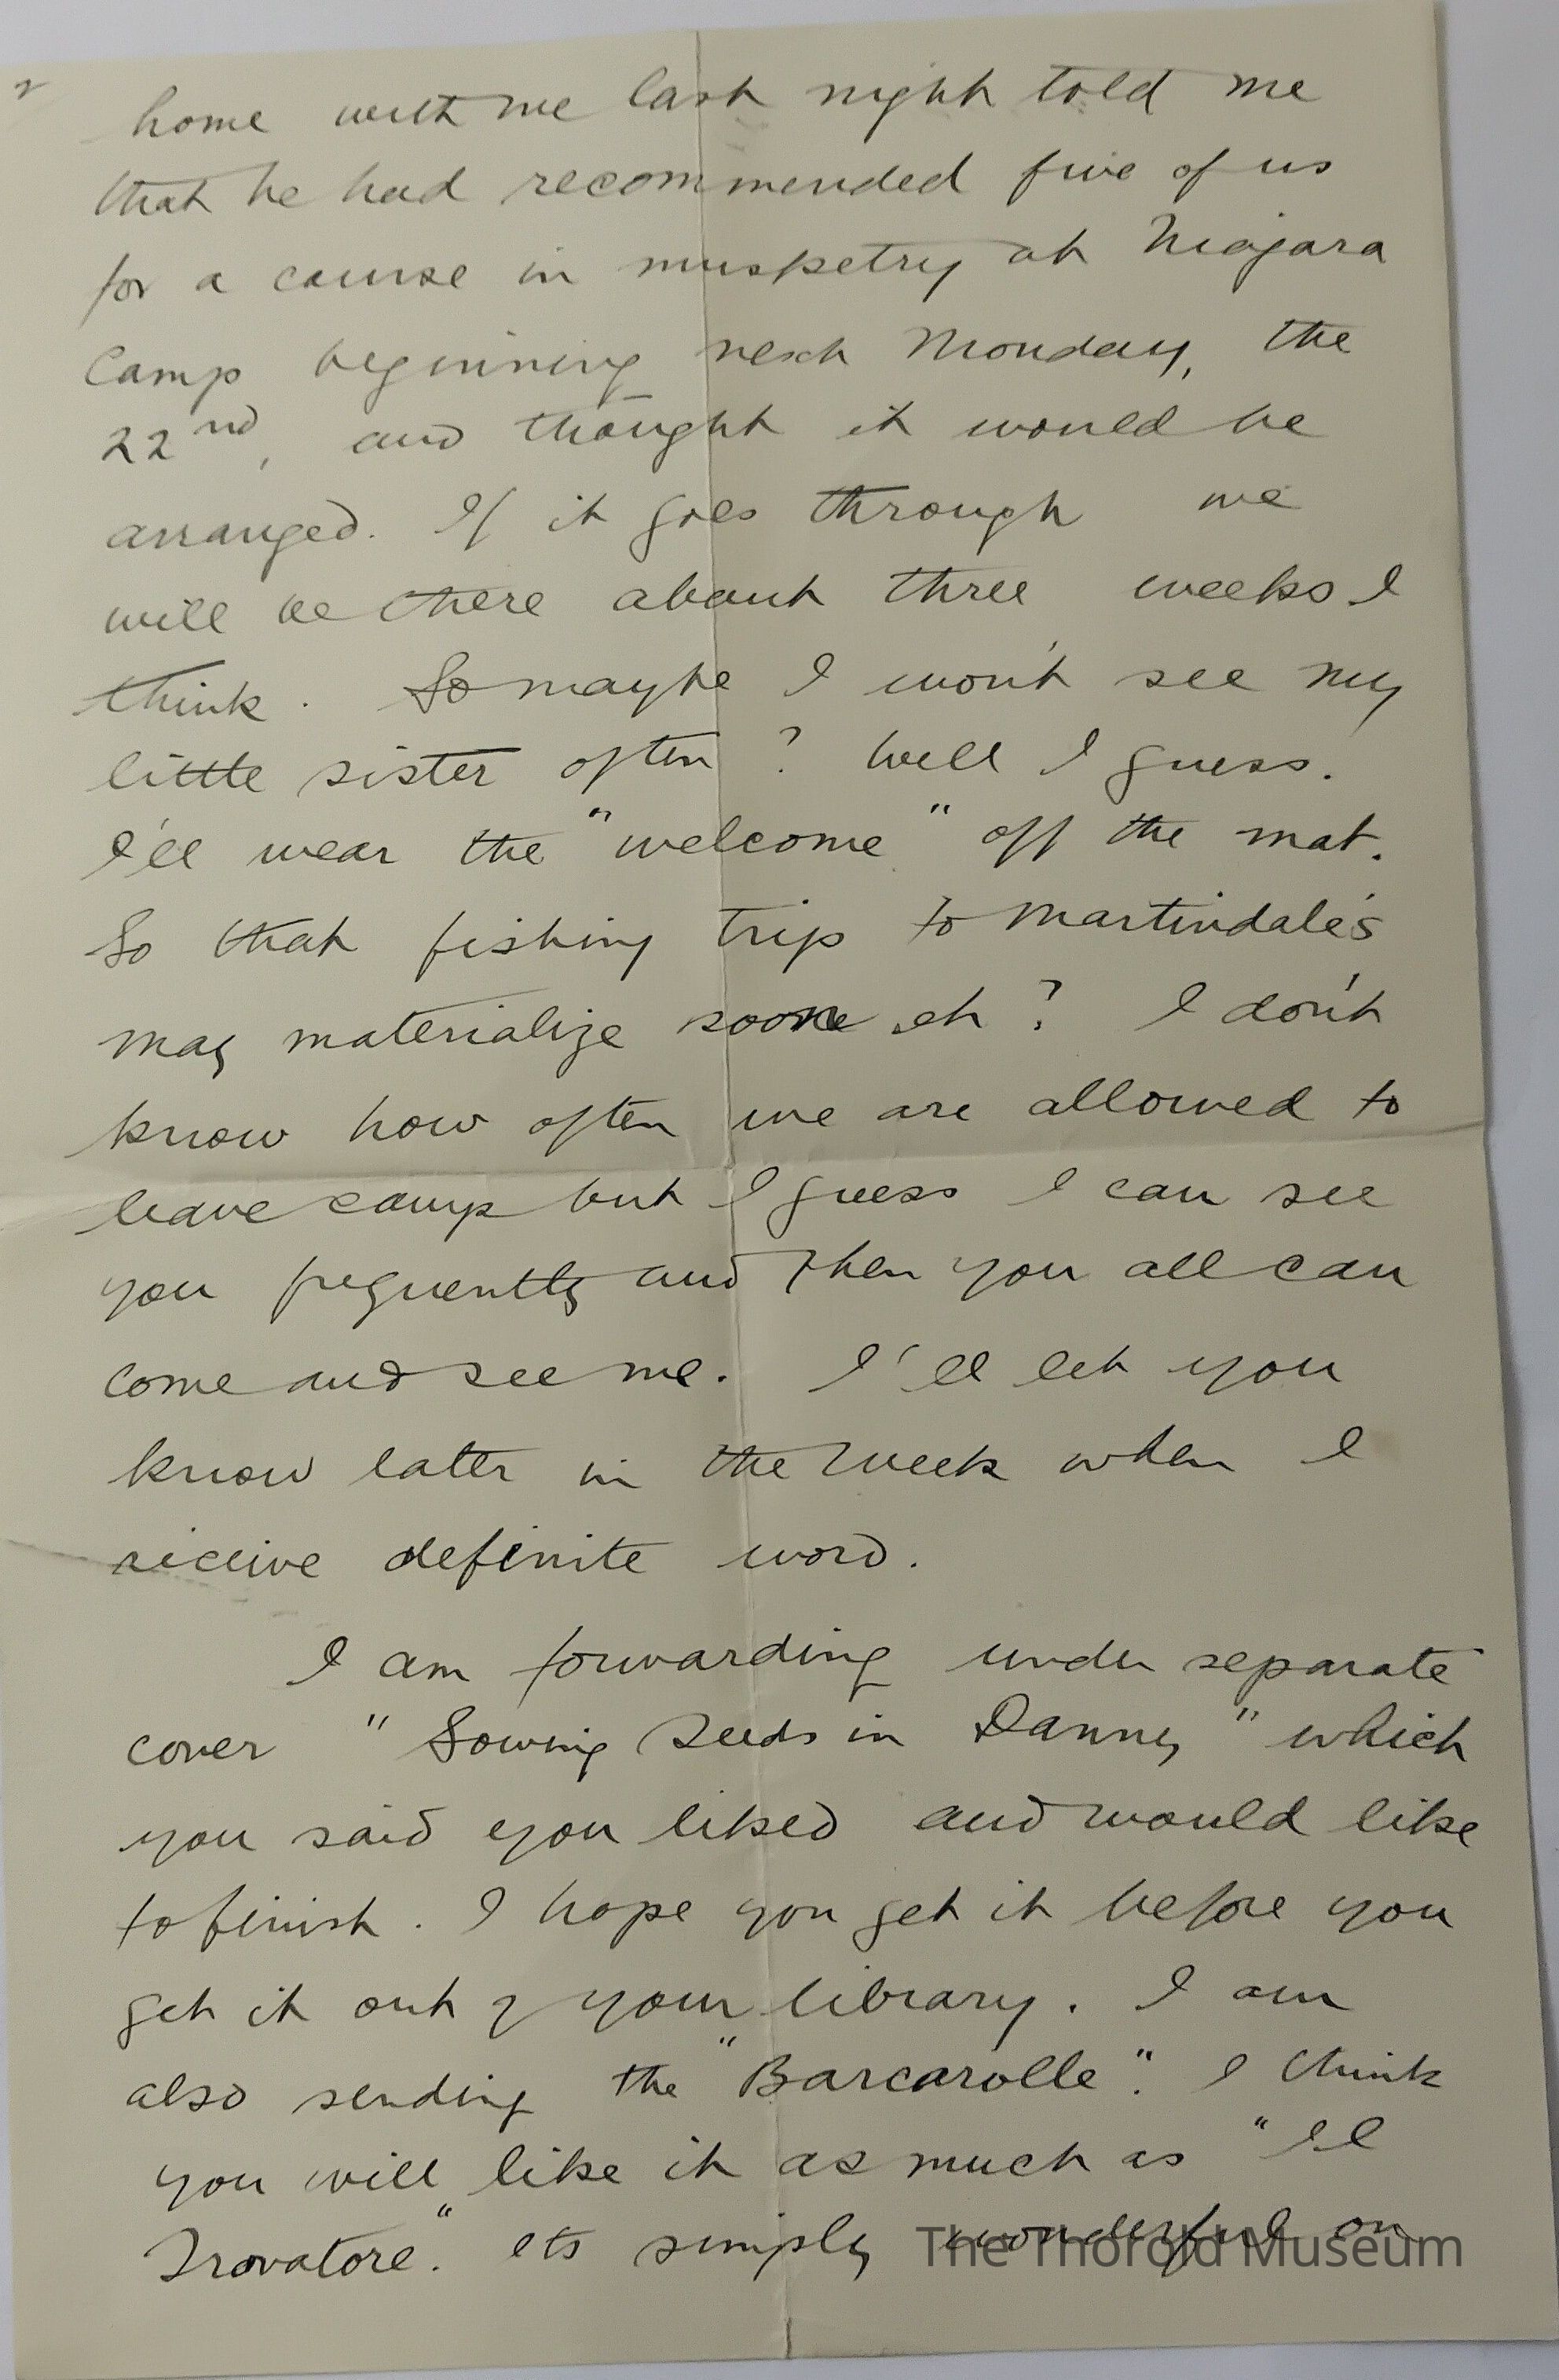 2
home with me last night told me
that he had recommended five of us
for a course in musketry at Niagara
Camp beginning next Monday, the
22nd, and thought it would be
arranged. If it goes through we
will be there about three weeks I
think. So maybe I won't see my
little sister often? Well I guess.
I'll wear the "welcome" off the mat.
So that fishing trip to Martindale's
may materialize soon eh? I don't
know how often we are allowed to
leave camp but I guess I can see
you frequently and then you all can
come and see me. I'll let you
know later in the week when I
receive definite word.
I am forwarding under separate
cover "Sowing Seeds in Danny" which
you said you liked and would like
to finish. I hope you get it before you
get it out of your library. I am
also sending the "Barcarolle". I think
you will like it as much as "Il
Trovatore." Its simply wonderful on
The Thorold Museum